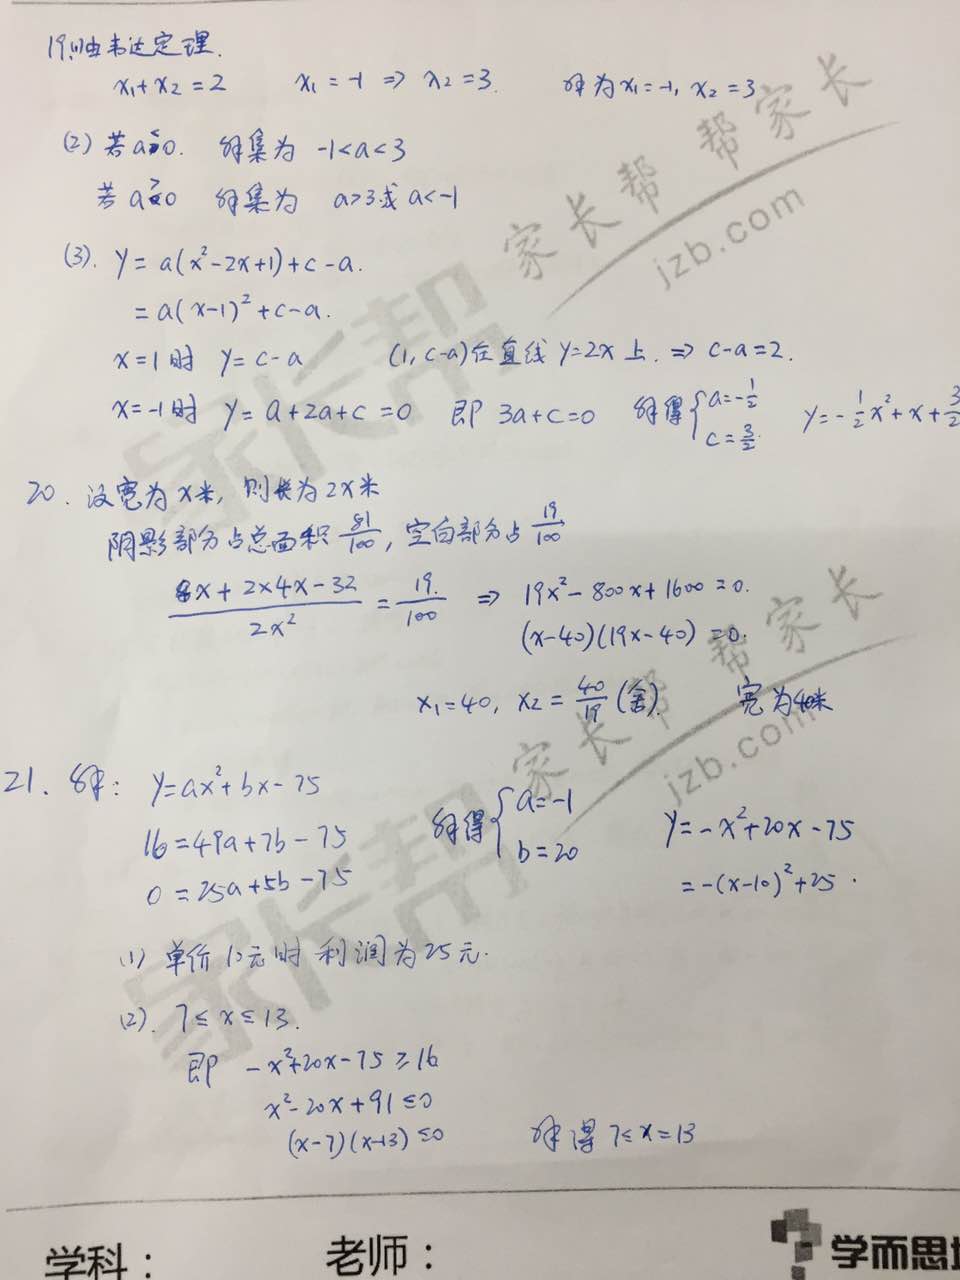 19.(1)由韦达定理.
x₁+x₂=2 x₁=-1 ⇒ x₂=3. 解为x₁=-1, x₂=3
(2) 若a<0. 解集为 -1<a<3
若a>0 解集为 a>3或a<-1
(3). y=a(x²-2x+1)+c-a.
=a(x-1)²+c-a.
x=1时 y=c-a (1, c-a)在直线y=2x上. ⇒ c-a=2.
x=-1时 y=a+2a+c=0 即 3a+c=0 解得{a=-1/2 c=3/2. y=-1/2x²+x+3/2
20. 设宽为x米, 则长为2x米
阴影部分占总面积81/100, 空白部分占19/100
(8x+2x4x-32)/2x² = 19/100 ⇒ 19x²-800x+1600=0.
(x-40)(19x-40)=0.
x₁=40, x₂=40/19(舍). 宽为40米
21. 解: y=ax²+bx-75
16=49a+7b-75 解得{a=-1 b=20 y=-x²+20x-75
0=25a+5b-75 =-(x-10)²+25.
(1) 单价10元时 利润为25元.
(2). 7≤x≤13.
即 -x²+20x-75≥16
x²-20x+91≤0
(x-7)(x-13)≤0 解得7≤x=13
家长帮
家长帮 帮家长
jzb.com
家长帮
家长帮 帮家长
jzb.com
学科： 老师： 学而思